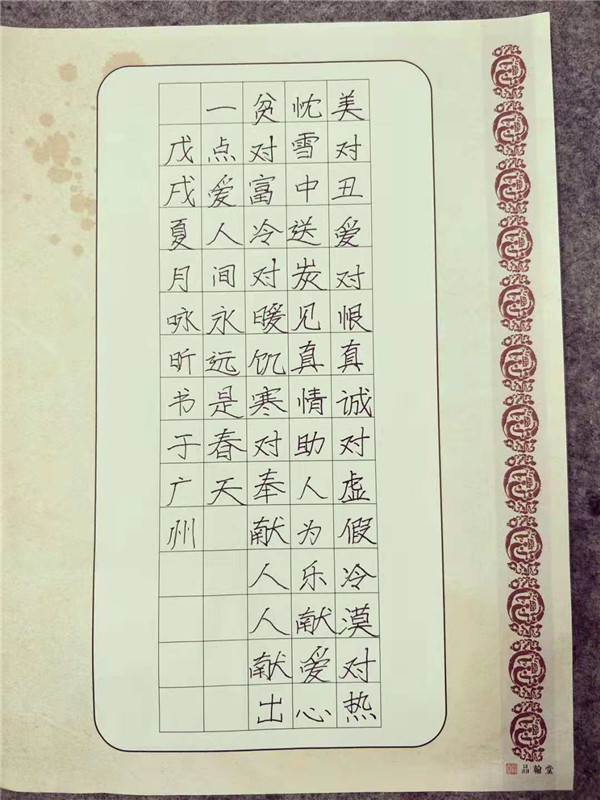 美对丑爱对恨真诚对虚假冷漠对热
忱雪中送炭见真情助人为乐献爱心
贫对富冷对暖饥寒对奉献人人献出
一点爱人间永远是春天
戊戌夏月咏昕书于广州
品翰堂